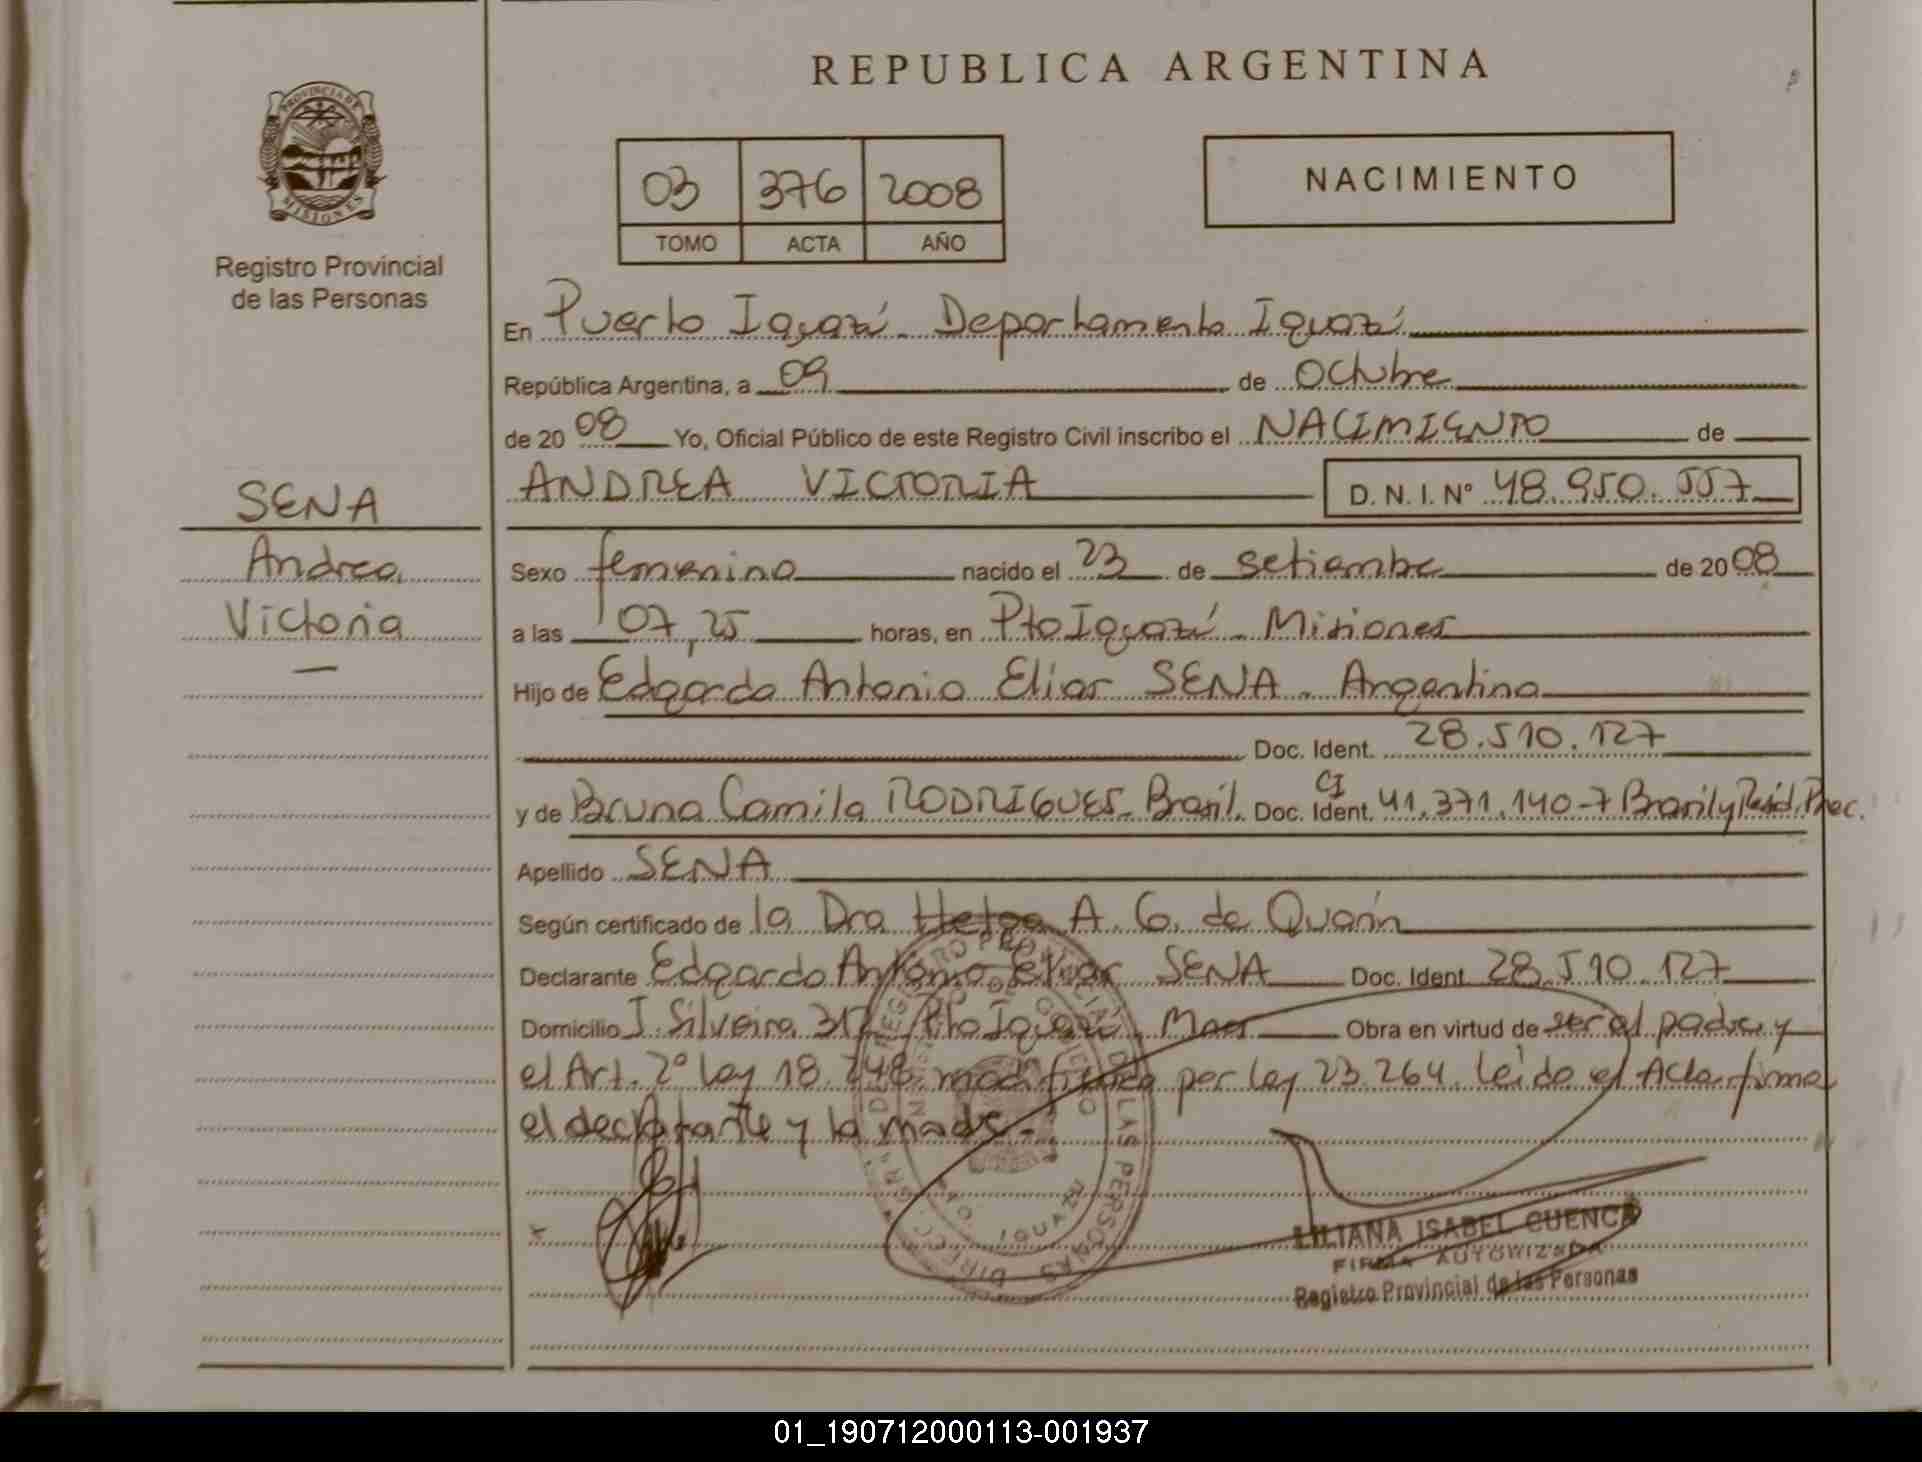 REPUBLICA ARGENTINA
PROVINCIA DE
MISIONES
Registro Provincial
de las Personas
03 376 2008
TOMO ACTA AÑO
NACIMIENTO
En Puerto Iguazú - Departamento Iguazú
República Argentina, a 09 de Octubre
de 2008 Yo, Oficial Público de este Registro Civil inscribo el NACIMIENTO de
ANDREA VICTORIA D. N. I. Nº 48.950.557
SENA
Andrea
Victoria
Sexo femenino nacido el 23 de setiembre de 2008
a las 07,25 horas, en Pto Iguazú - Misiones
Hijo de Edgardo Antonio Elias SENA - Argentino
Doc. Ident. 28.510.127
y de Bruna Camila RODRIGUES - Brasil. Doc. Ident. CI 41.371.140-7 Brasil y Resid. Prec.
Apellido SENA
Según certificado de la Dra Helga A. G. de Quarín
Declarante Edgardo Antonio Elias SENA Doc. Ident. 28.510.127
Domicilio J. Silveira 317 Pto Iguazú, Mnes Obra en virtud de ser el padre y
el Art. 2º Ley 18.248 modificada por Ley 23.264. Leído el Acta firma
el declarante y la madre.-
IGUAZU
LILIANA ISABEL CUENCA
FIRMA AUTORIZADA
Registro Provincial de las Personas
01_190712000113-001937